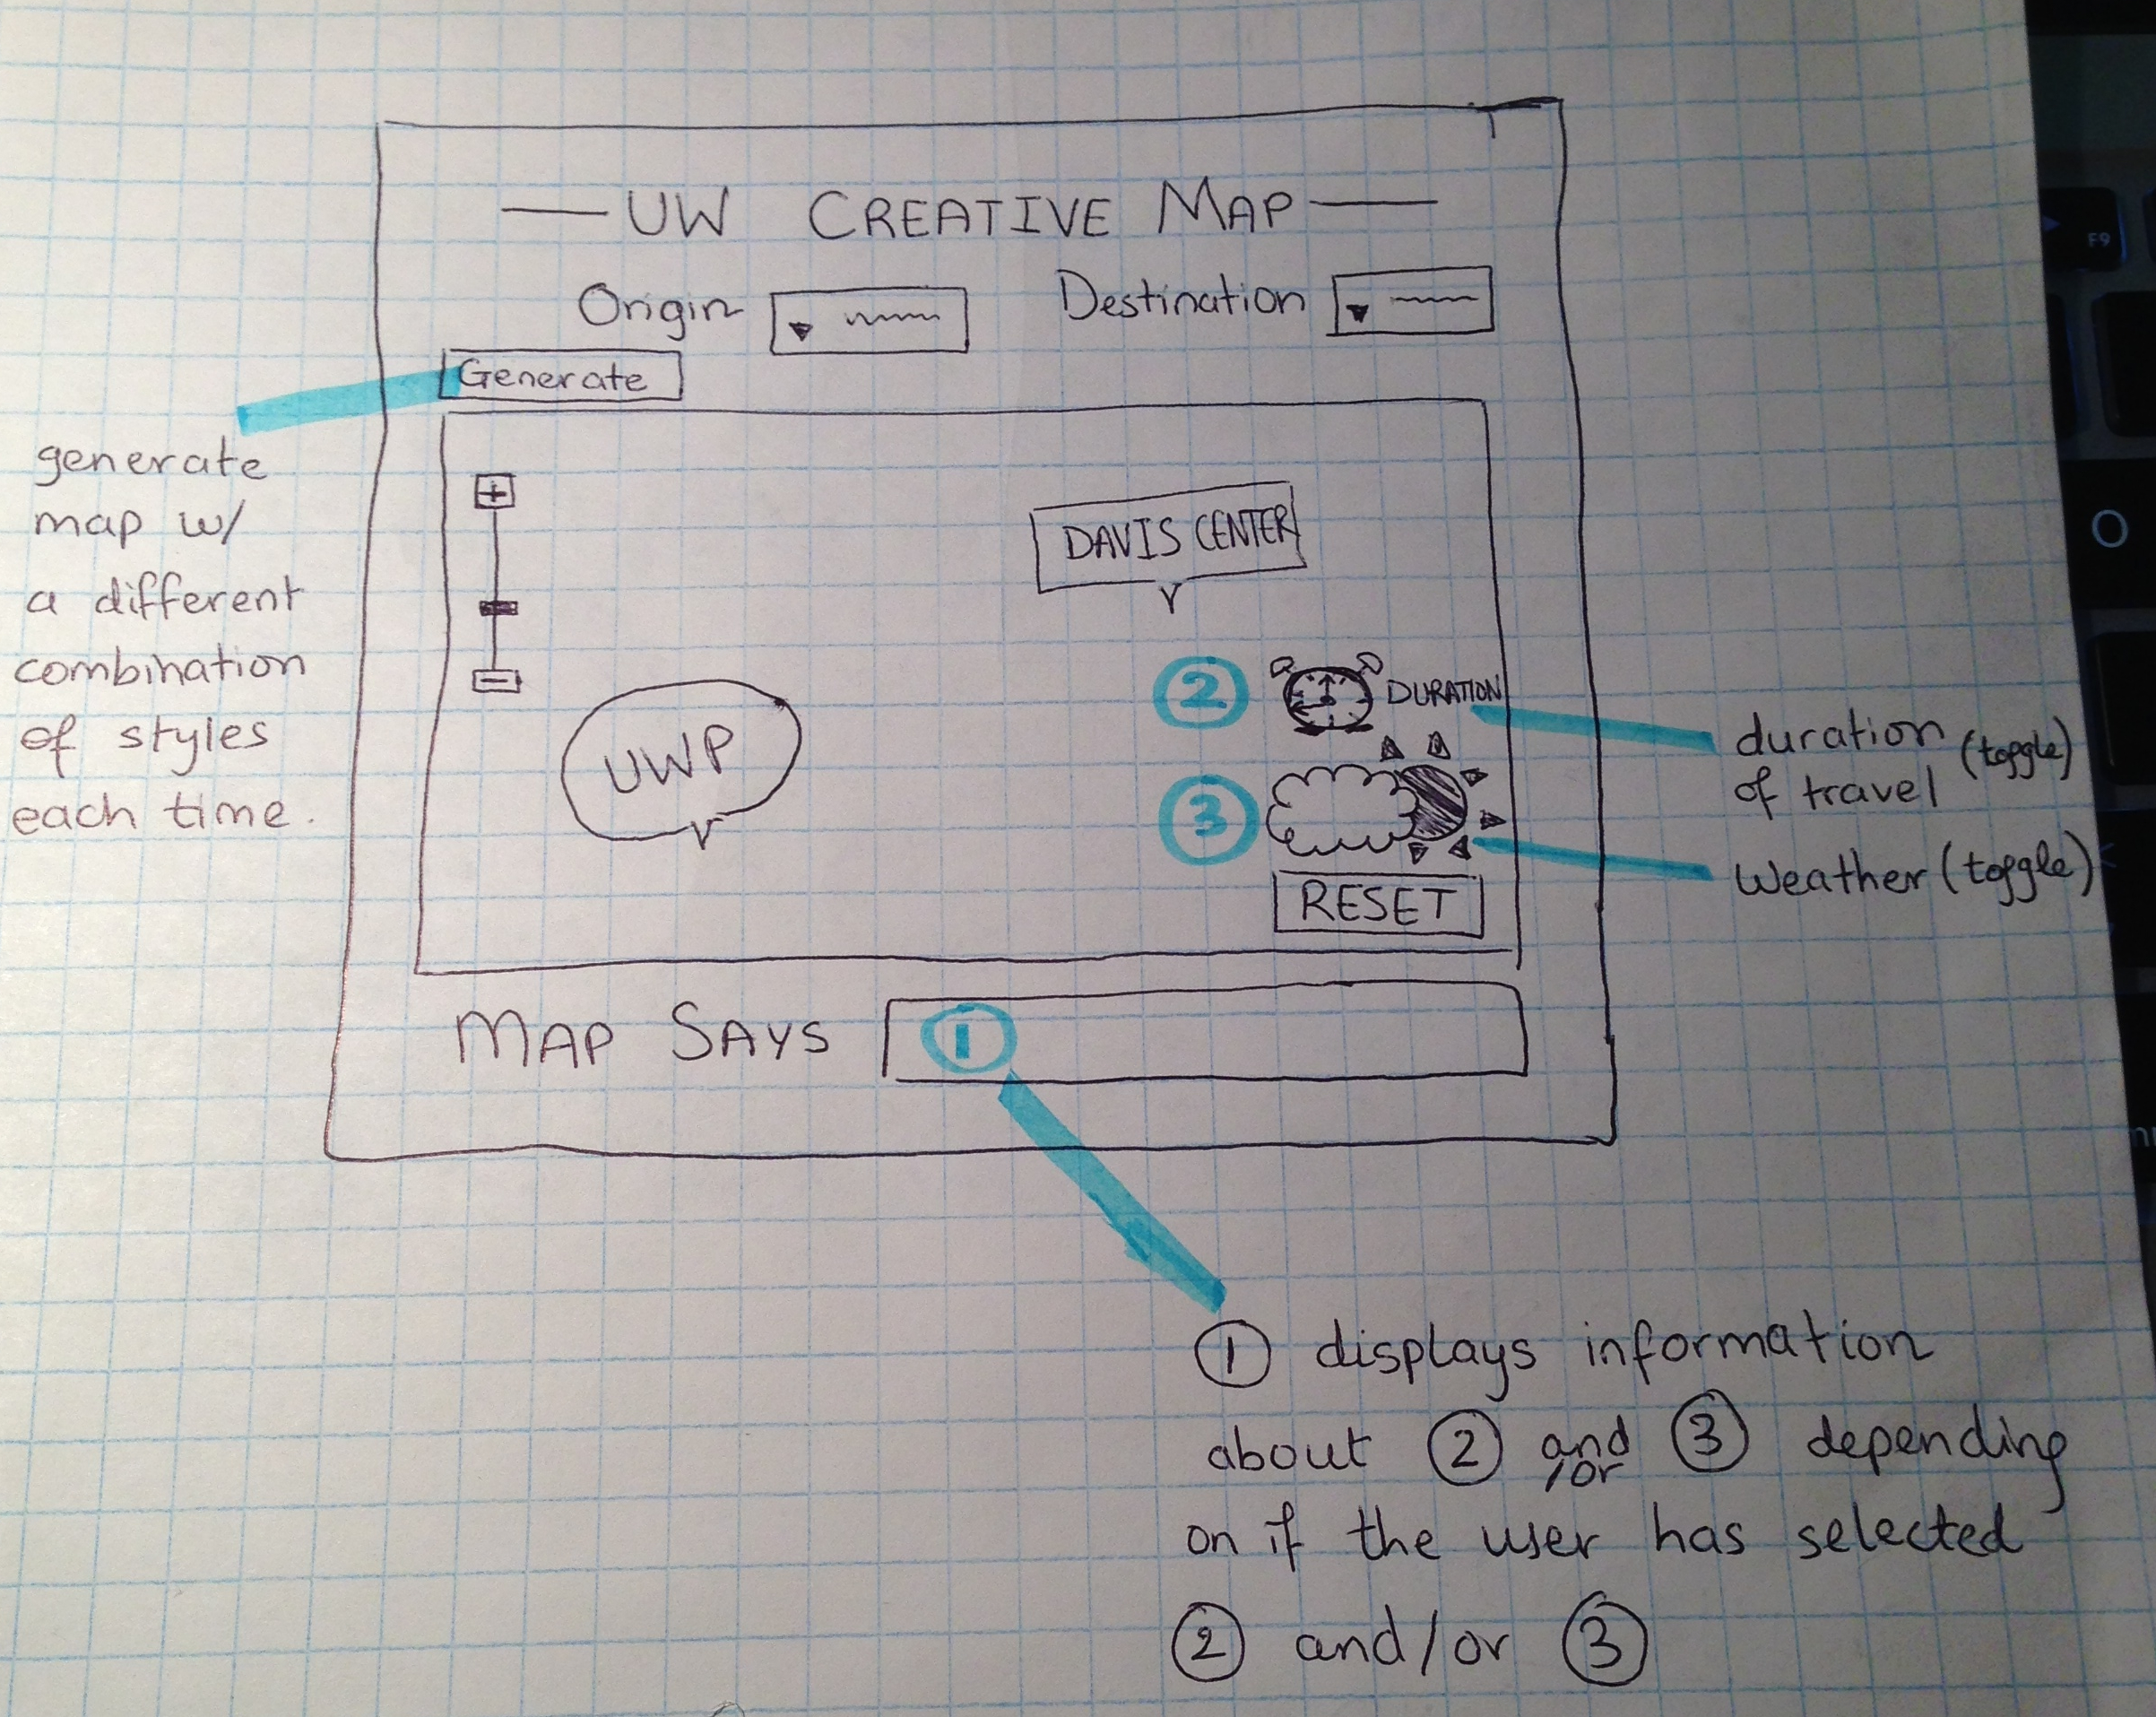 UW CREATIVE MAP
Origin
Destination
Generate
generate
map w/
a different
combination
of styles
each time.
DAVIS CENTER
UWP
2
DURATION
3
RESET
duration (toggle)
of travel
Weather (toggle)
MAP SAYS
1
1 displays information
about 2 and /or 3 depending
on if the user has selected
2 and/or 3
F9
O